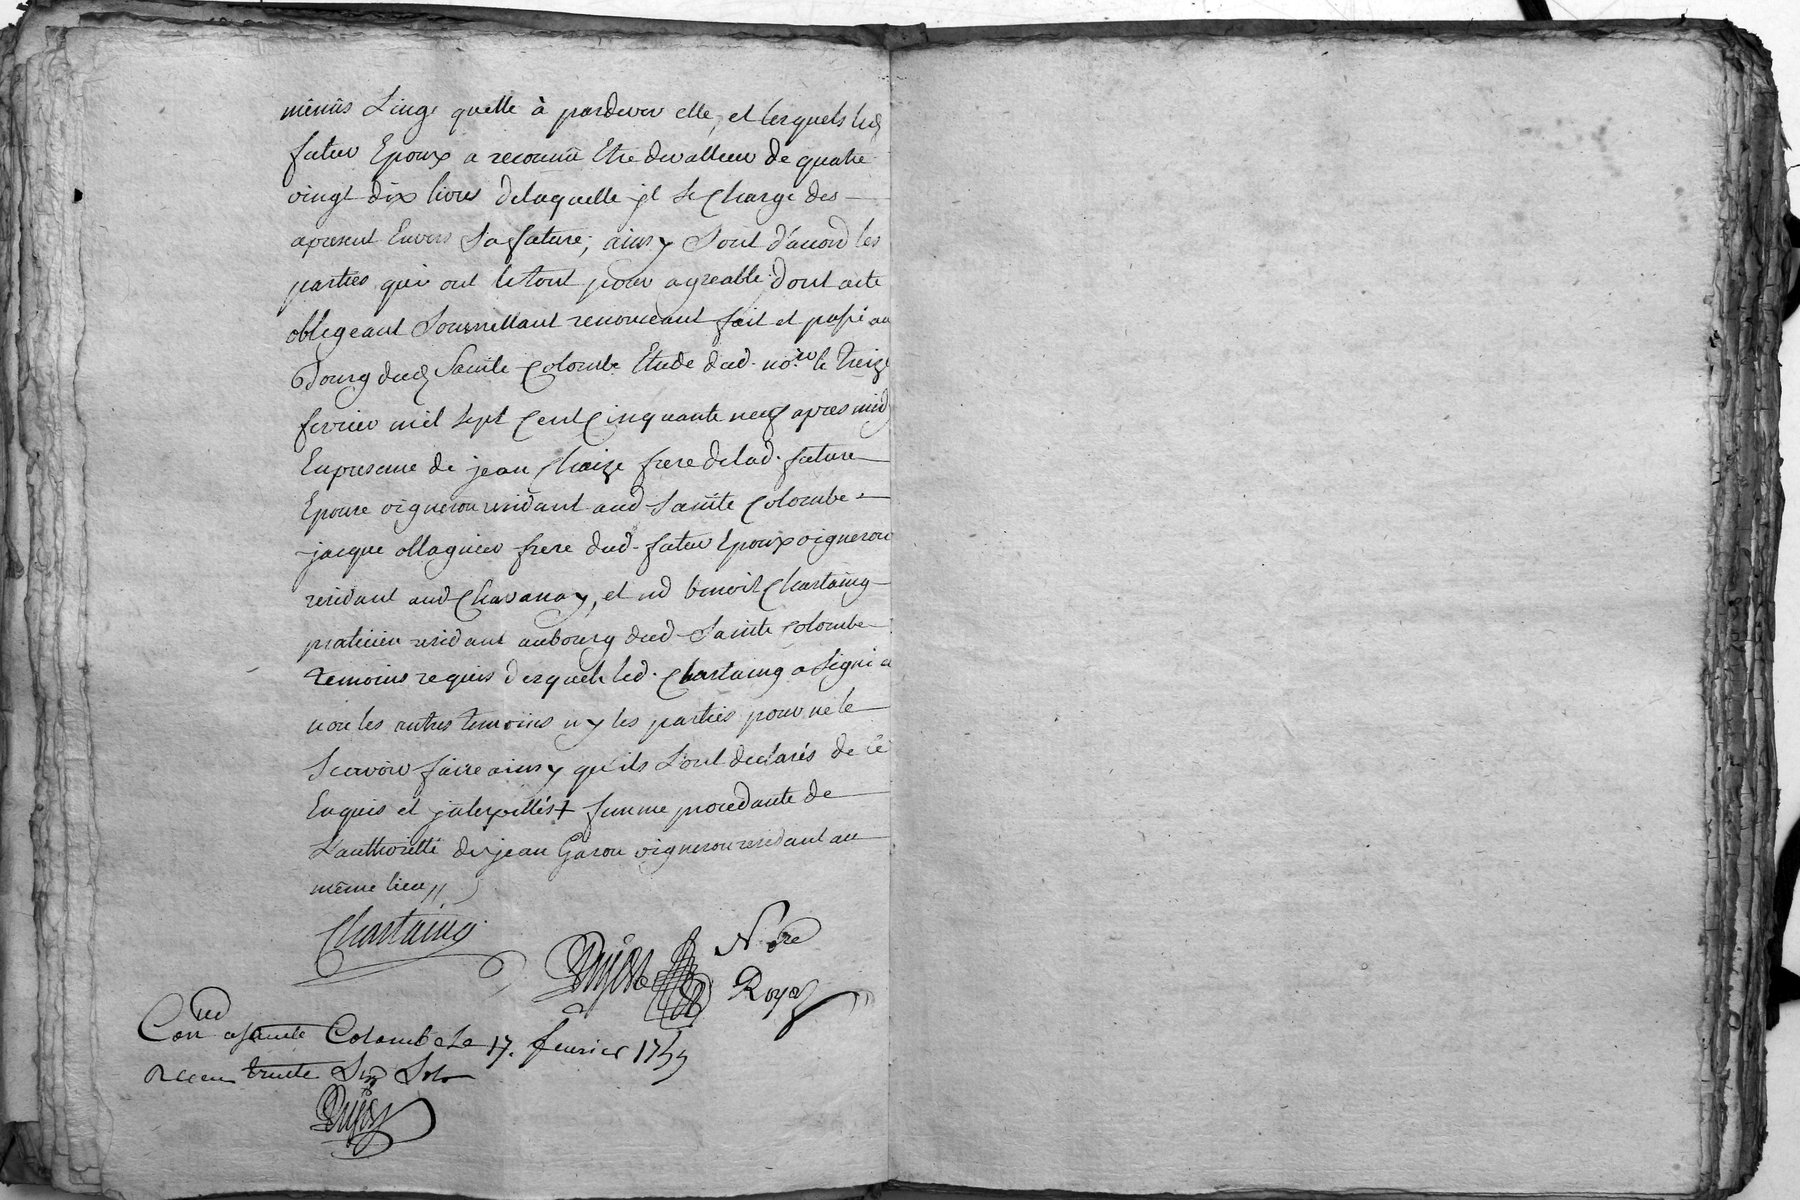 menüs Linge quelle à pardever elle, et lesquels led
futur Epoux a reconnü Etre de valleur de quatre
vingt dix livres delaquelle jl Se Charge des
apresent Envers Sa future; ainsy Sont d'acord les
parties qui ont le tout pour agreable dont acte
obligeant Soumettant renonceant fait et passé au
Bourg dud Sainte Colombe Etude dud. no.re le treize
fevrier mil sept Cent Cinquante neuf apres midy
En presence de jean Chaize frere delad. future
Epouse vigneron residant aud Sainte Colombe
jacque ollagnier frere dud. futur Epoux vigneron
residant aud Chavanay, et sr benoit Chartaing
praticien residant au bourg dud Sainte Colombe
temoins requis desquels led. Chartaing a Signé et
non les autres temoins ny les parties pour ne le
Scavoir faire ainsy qu'ils L'ont declarés de ce
Enquis et jnterpellés + femme procedante de
L'authoritté de jean Garon vigneron residant au
même lieu //
Chartaing
N.re
Royal
Con a Sainte Colombe Le 17. fevrier 1759
Receu trente Six Sols